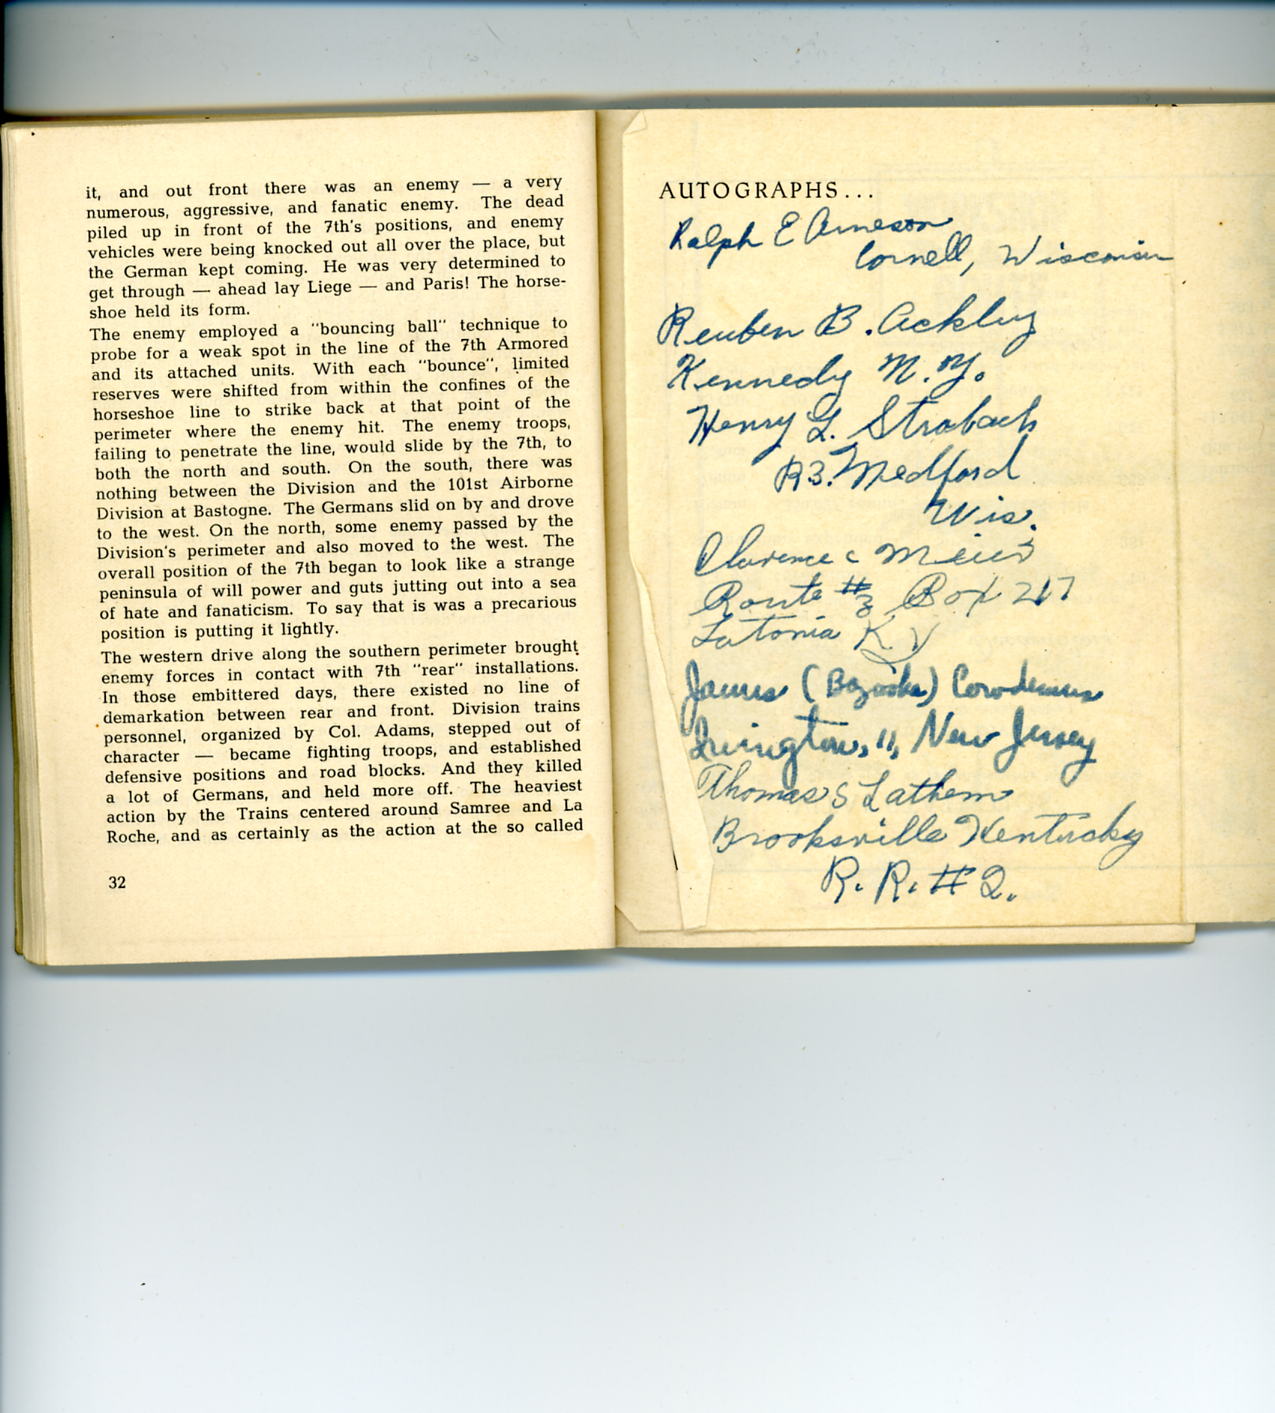 it, and out front there was an enemy — a very
numerous, aggressive, and fanatic enemy. The dead
piled up in front of the 7th's positions, and enemy
vehicles were being knocked out all over the place, but
the German kept coming. He was very determined to
get through — ahead lay Liege — and Paris! The horse-
shoe held its form.
The enemy employed a "bouncing ball" technique to
probe for a weak spot in the line of the 7th Armored
and its attached units. With each "bounce", limited
reserves were shifted from within the confines of the
horseshoe line to strike back at that point of the
perimeter where the enemy hit. The enemy troops,
failing to penetrate the line, would slide by the 7th, to
both the north and south. On the south, there was
nothing between the Division and the 101st Airborne
Division at Bastogne. The Germans slid on by and drove
to the west. On the north, some enemy passed by the
Division's perimeter and also moved to the west. The
overall position of the 7th began to look like a strange
peninsula of will power and guts jutting out into a sea
of hate and fanaticism. To say that is was a precarious
position is putting it lightly.
The western drive along the southern perimeter brought
enemy forces in contact with 7th "rear" installations.
In those embittered days, there existed no line of
demarkation between rear and front. Division trains
personnel, organized by Col. Adams, stepped out of
character — became fighting troops, and established
defensive positions and road blocks. And they killed
a lot of Germans, and held more off. The heaviest
action by the Trains centered around Samree and La
Roche, and as certainly as the action at the so called
32
AUTOGRAPHS...
Ralph E Arneson
Cornell, Wisconsin
Reuben B. Ackley
Kennedy N.Y.
Henry G. Strobach
R3. Medford
Wis.
Clarence C Meier
Route #3 Box 217
Latonia Ky
James (Bazooka)
Irvington, 11, New Jersey
Thomas S Lathem
Brooksville Kentucky
R. R. # 2.